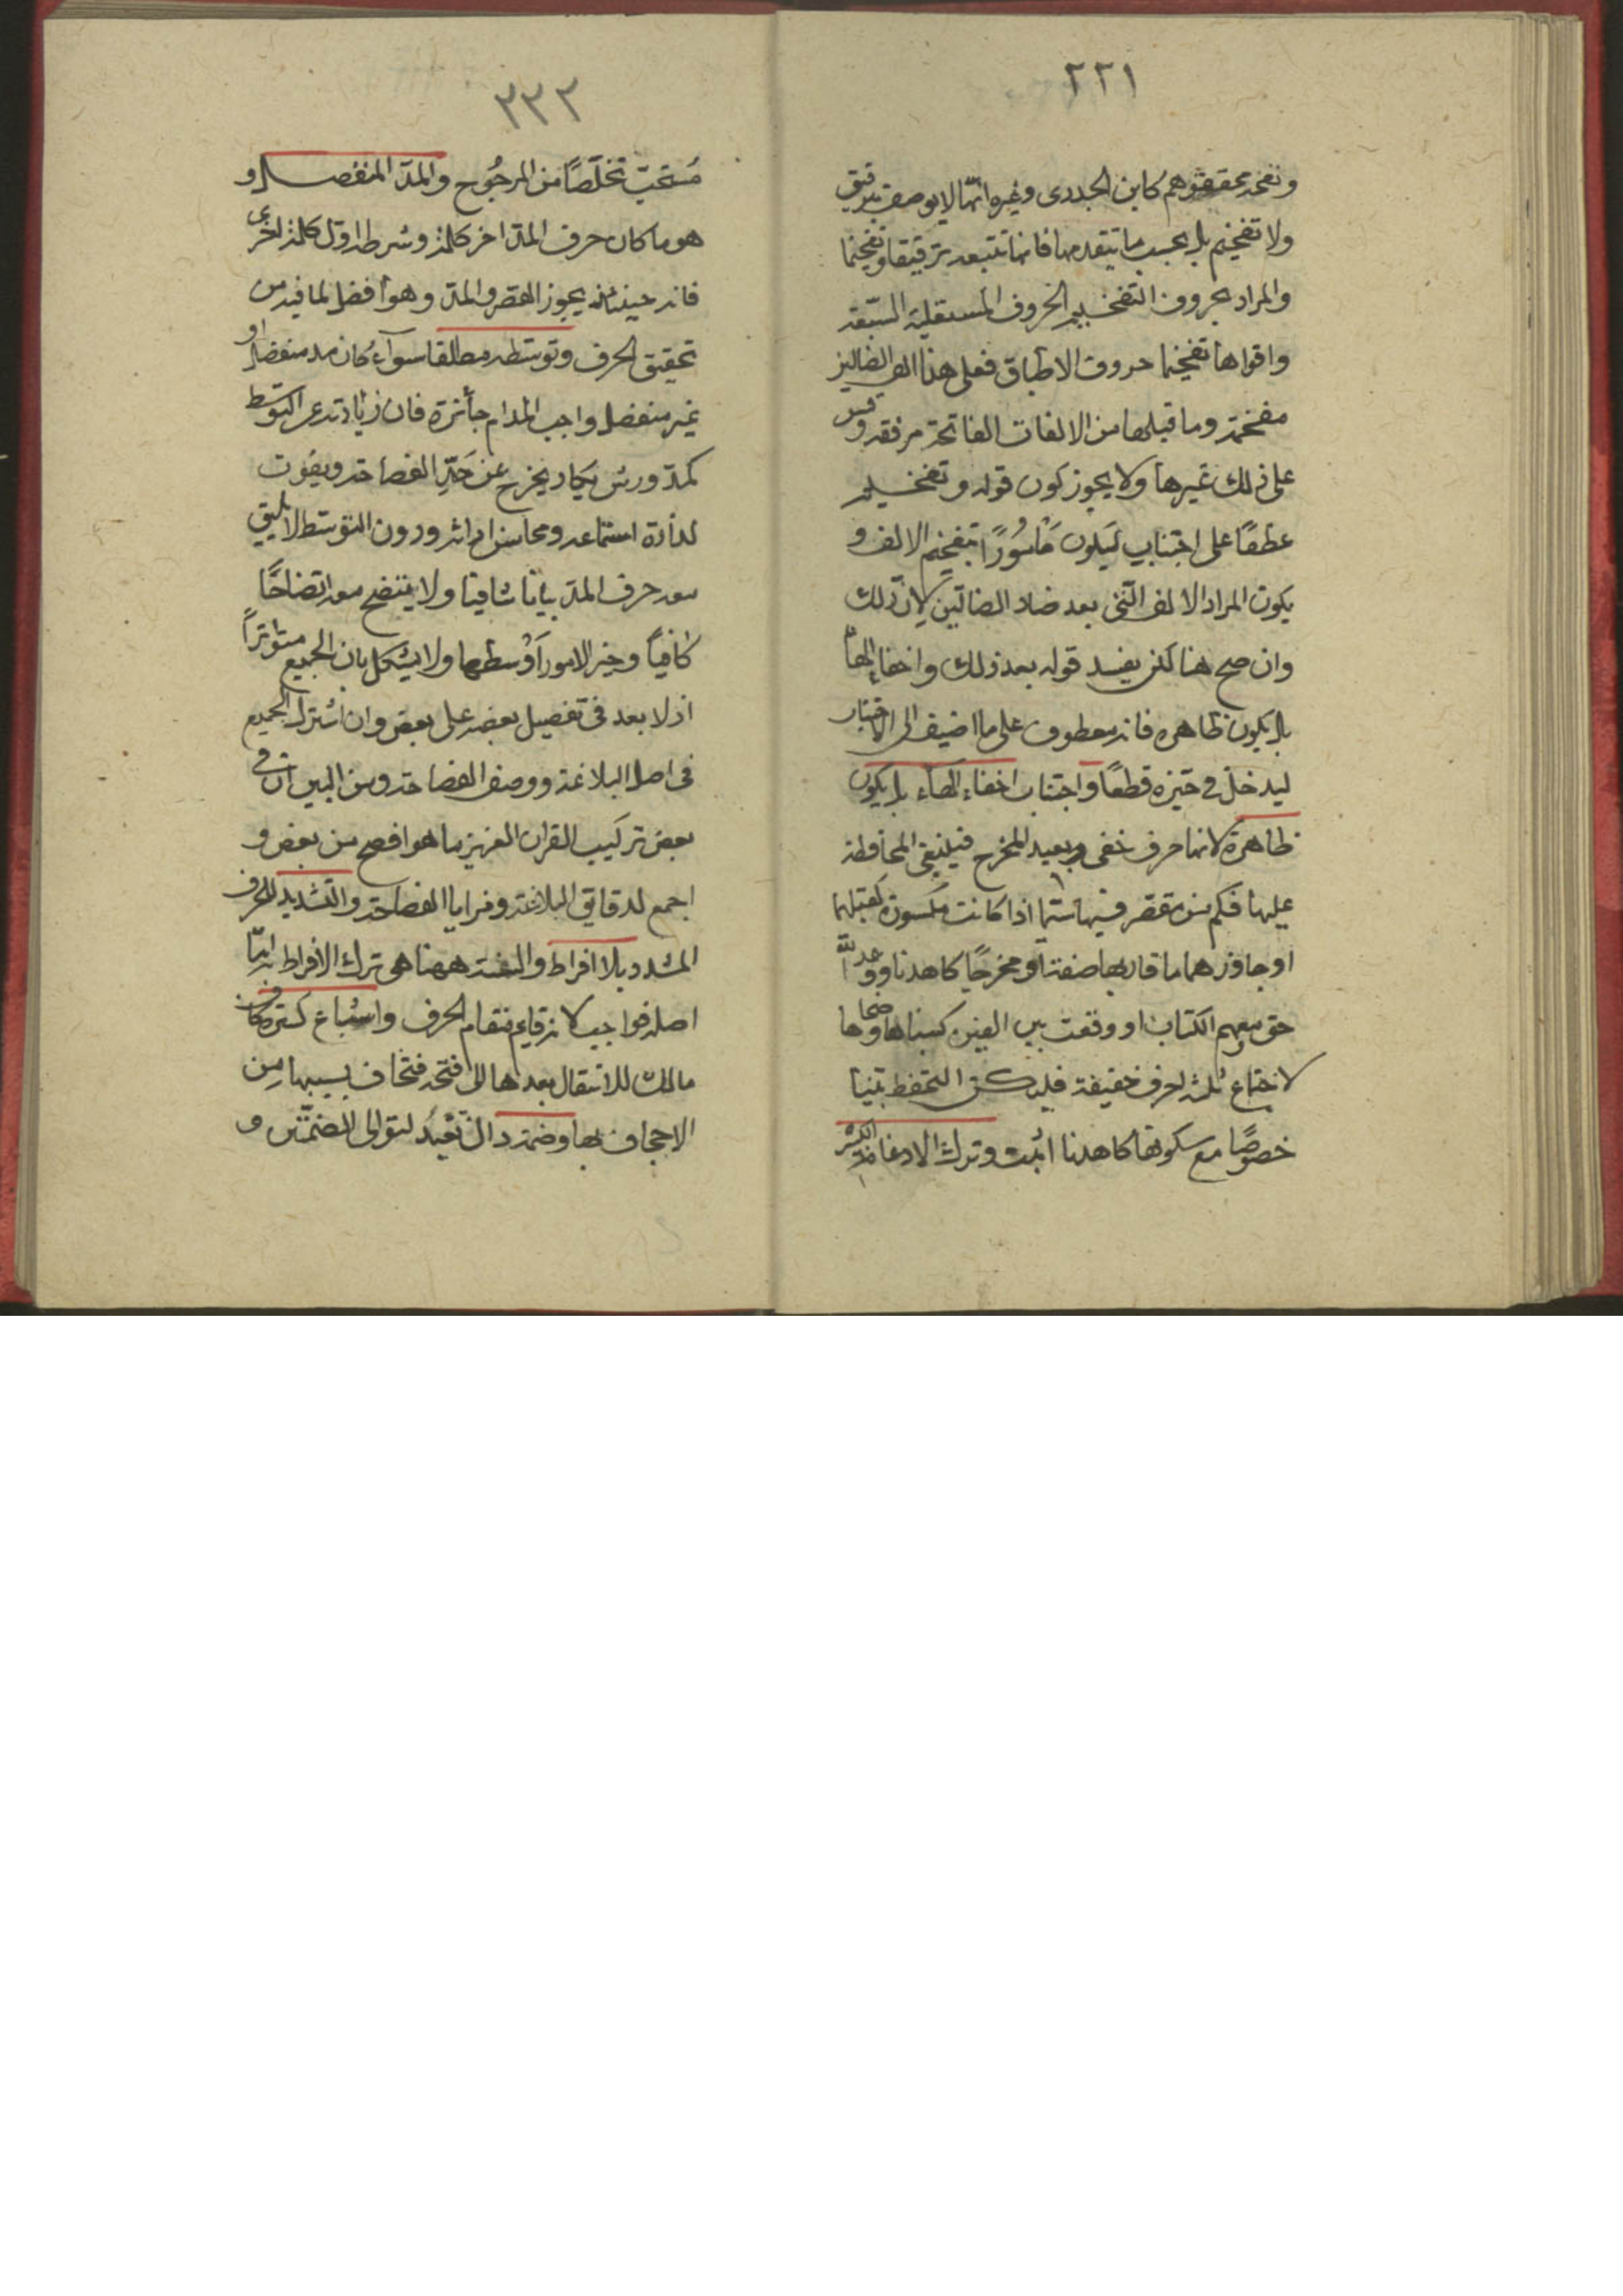 ٢٢١
وتفخه محققوهم كابن الجدرى وغيره انها لا يوصف بترقيق
ولا تفخيم بل بحسب ما يتقدمها فانها تتبعه ترقيقا وتفخيما
والمراد بحروف التفخيم الحروف المستعلية السبعة
واقواها تفخيما حروف الاطباق فعلى هذا الف الضالين
مفخمة وما قبلها من الالفات الفاتحة مرققة وقس
على ذلك غيرها ولا يجوز كون قوله وتفخيم
عطفا على اجتناب ليكون مأمورًا بتفخيم الالف و
يكون المراد الالف التى بعد ضاد الضالين لان ذلك
وان صح هنا لكن يفسد قوله بعد ذلك واخفاء الهاء
بل يكون ظاهره فانه معطوف على ما اضيف الى الاجتناب
ليدخل فى حيزه قطعًا واجتناب اخفاء الهاء بل يكون
ظاهرة لانها حرف خفى وبعيد المخرج فينبغى المحافظة
عليها فكم من مقصر فيها سيما اذا كانت مكسورة كعليهم
او جاوزهما ما قاربها صفة او مخرجًا كاهدنا ووعد الله
حق معهم الكتاب او وقعت بين الفين كبناها وضحاها
لاجتماع ثلثة احرف خفيفة فليكن التحفظ بتبيا
خصوصًا مع سكونها كاهدنا اثبت وترك الادغام الكبير
٣٣٣
مُستحبّ تخلّصًا من المرجُوح والمدّ المنفصل و
هو ما كان حرف المد اخر كلمة وشرطه اول كلمة اخرى
فانه حينئذ يجوز القصر والمدّ وهو أفضل لما فيه من
تحقيق الحرف وتوسّطه مطلقا سوآء كان مد منفصل او
غير منفصل واجب المد ام جائزه فان زيادته عن التوسّط
كمدّ ورش يكاد يخرج عن حَيّز الفصاحة ويفُوت
لذاذة استماعه ومحاسن اداثه ودون التوسّط لا يليق
معه حرف المدّ بيانا شافيا ولا يتضح معه اتضاحًا
كافيًا وخير الامور أوْسطها ولا يشكل بان الجميع متواترًا
اذ لا بعد فى تفضيل بعضه على بعض وان اشترك الجميع
فى اصل البلاغة ووصف الفصاحة ومن البين ان فى
بعض تركيب القران العزيز ما هو افصح من بعض و
اجمع لدقايق البلاغة ومزايا الفصاحة والتشديد للحرف
المشدد بلا افراط والسنة ههنا هى ترك الافراط به امّا
اصله فواجب لانه قايم مقام الحرف واشباع كسرة كاف
مالك للانتقال بعدها الى فتحة فتخاف بسببها من
الاجحاف بها وضمة دال نَعْبُدُ لتوالى الضمّتين و